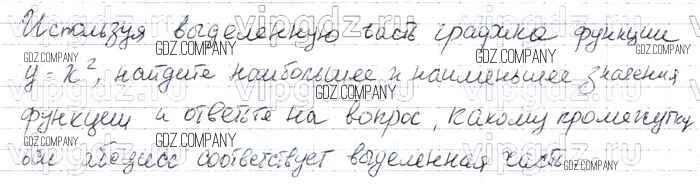 Используя выделенную часть графика функции
y = x², найдите наибольшее и наименьшее значения
функции и ответьте на вопрос, какому промежутку
оси абсцисс соответствует выделенная часть
GDZ.COMPANY
GDZ.COMPANY
GDZ.COMPANY
GDZ.COMPANY
GDZ.COMPANY
GDZ.COMPANY